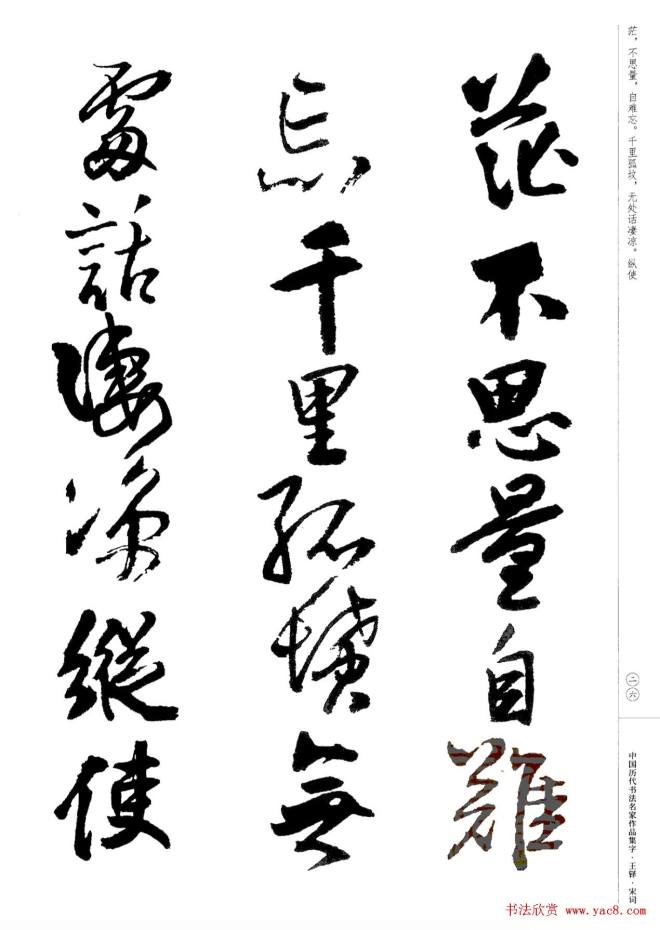 茫不思量自難
忘千里孤墳無
處話凄涼縱使
茫，不思量，自难忘。千里孤坟，无处话凄凉。纵使
二六
中国历代书法名家作品集字·王铎·宋词
书法欣赏 www.yac8.com